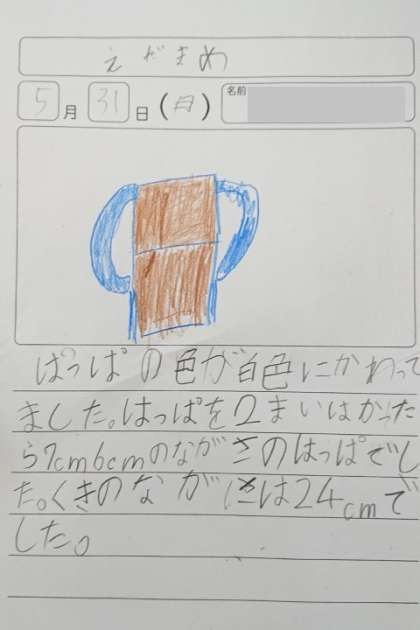 えだまめ
5月31日(月)
名前
はっぱの色が白色にかわって
ました。はっぱを2まいはかった
ら7cm6cmのながさのはっぱでし
た。くきのながさは24cmで
した。